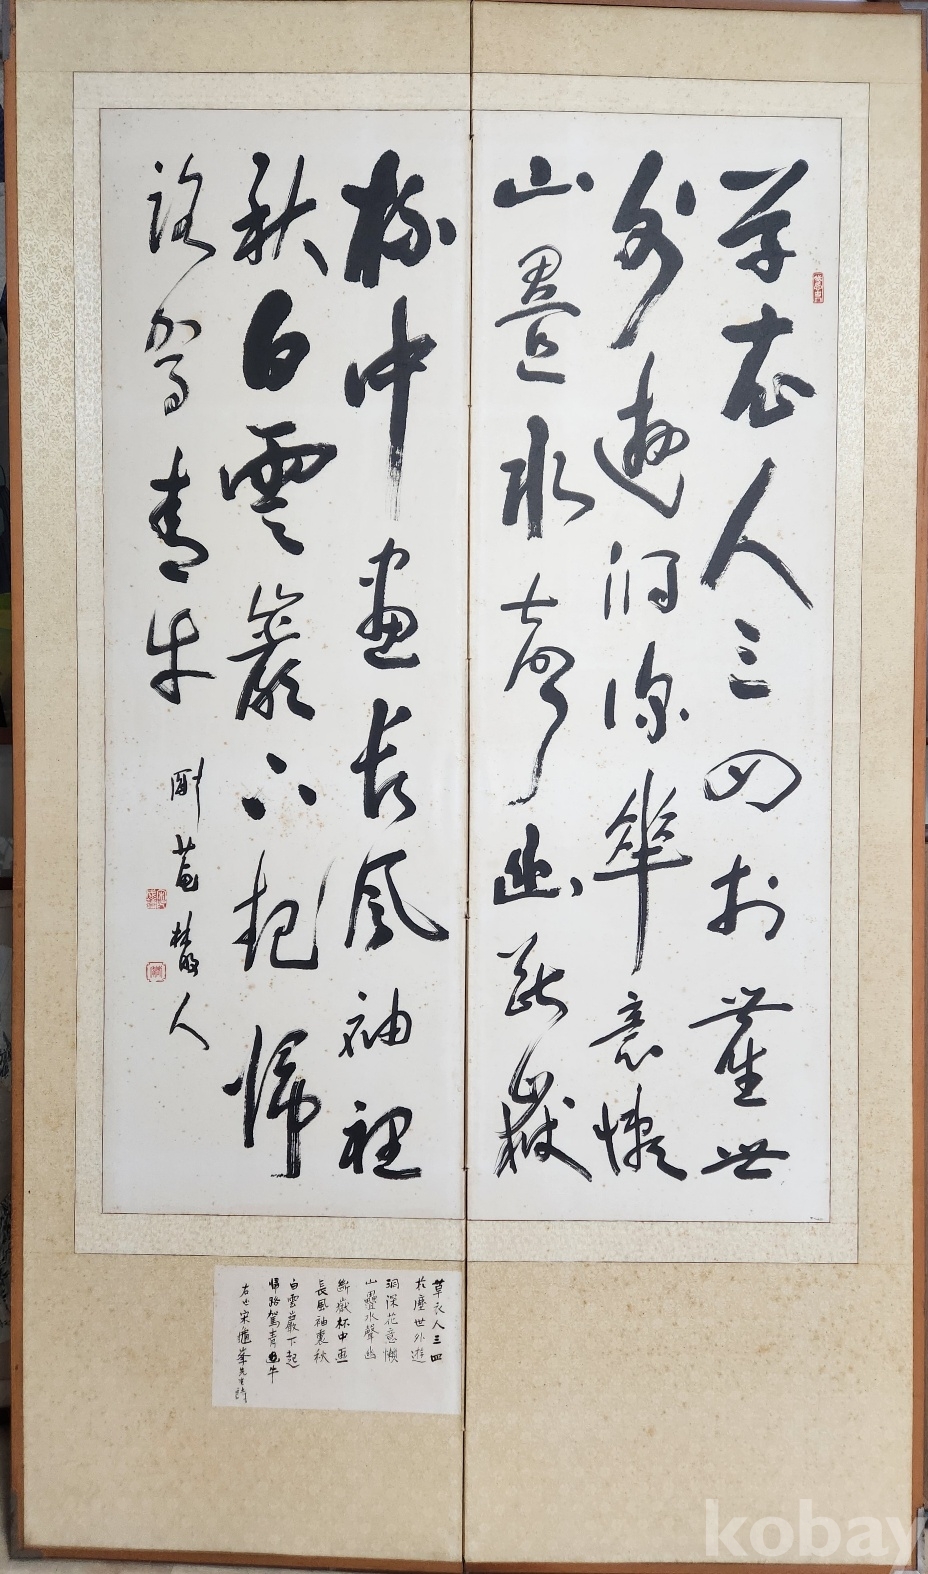 草衣人三四於塵世
外遊洞深花意懶
山疊水聲幽斷嶽
杯中畫長風袖裡
秋白雲巖下起歸
路駕青牛
人
草衣人三四
於塵世外遊
洞深花意懶
山疊水聲幽
斷嶽杯中画
長風袖裏秋
白雲巖下起
歸路駕青牛
右世宋龜峯先生詩
kobay